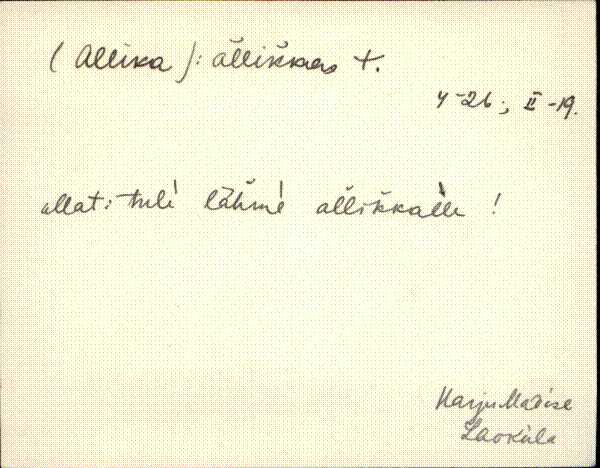 (Allika): allikkas t.
4-26; II-19.
allat: tuli lähme allikkalle !
Harju-Madise
Laoküla